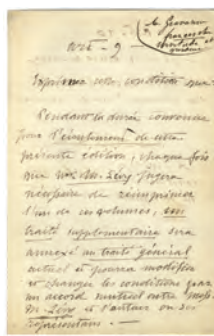 Art - 9 -
Pendant la durée convenue
pour l'écoulement de cette
présente édition, chaque fois
que MM. Levy jugera
nécessaire de réimprimer
l'un de ces volumes, un
traité supplémentaire sera
annexé au traité général
actuel et pourra modifier
et changer les conditions par
un accord mutuel entre
M. Levy et l'auteur ou ses
représentans. -